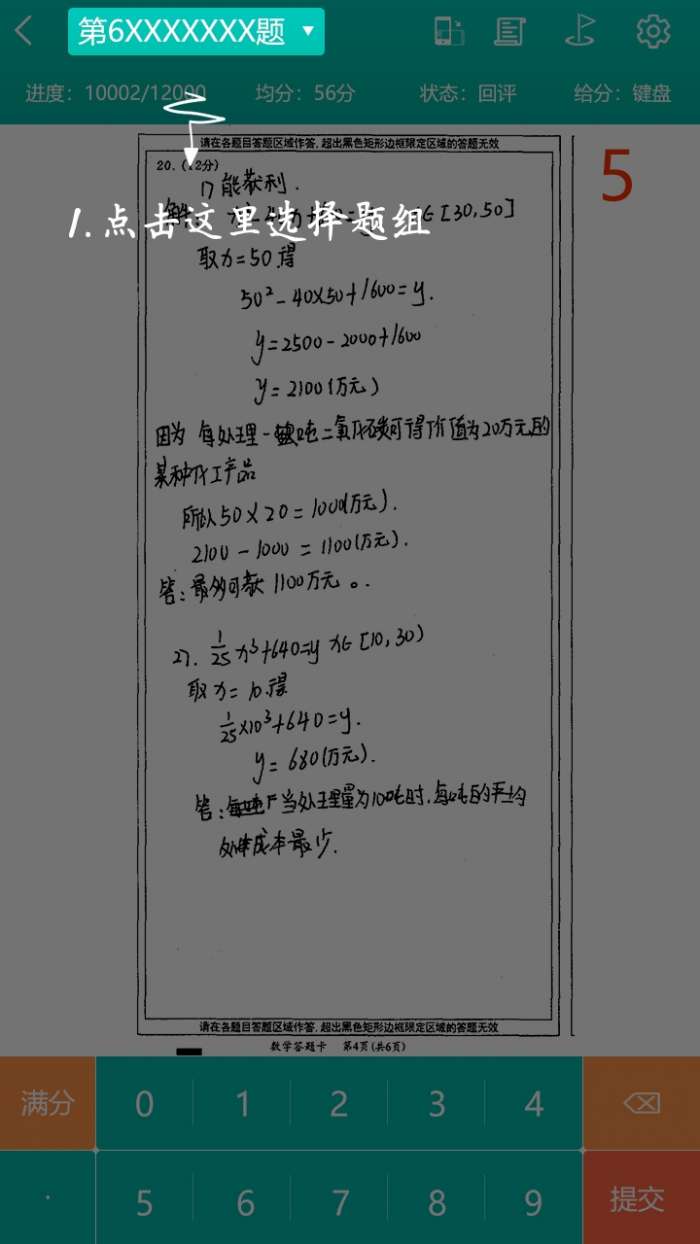 第6XXXXXXX题
进度：10002/12000 均分：56分 状态：回评 给分：键盘
请在各题目答题区域作答，超出黑色矩形边框限定区域的答题无效
20.(12分)
5
1)能获利.
1.点击这里选择题组
[30,50]
取x=50得
50²-40×50+1600=y.
y=2500-2000+1600
y=2100(万元)
因为 每处理一吨二氧化碳可得价值为20万元的
某种化工产品
所以50×20=1000(万元).
2100-1000=1100(万元).
答:最多可获1100万元。.
27. 1/25 x³+640=y x∈[10,30)
取x=10.得
1/25×10³+640=y.
y=680(万元).
答:当处理量为10吨时,每吨的平均
成本最少.
请在各题目答题区域作答，超出黑色矩形边框限定区域的答题无效
数学答题卡 第4页(共6页)
满分 0 1 2 3 4
. 5 6 7 8 9 提交